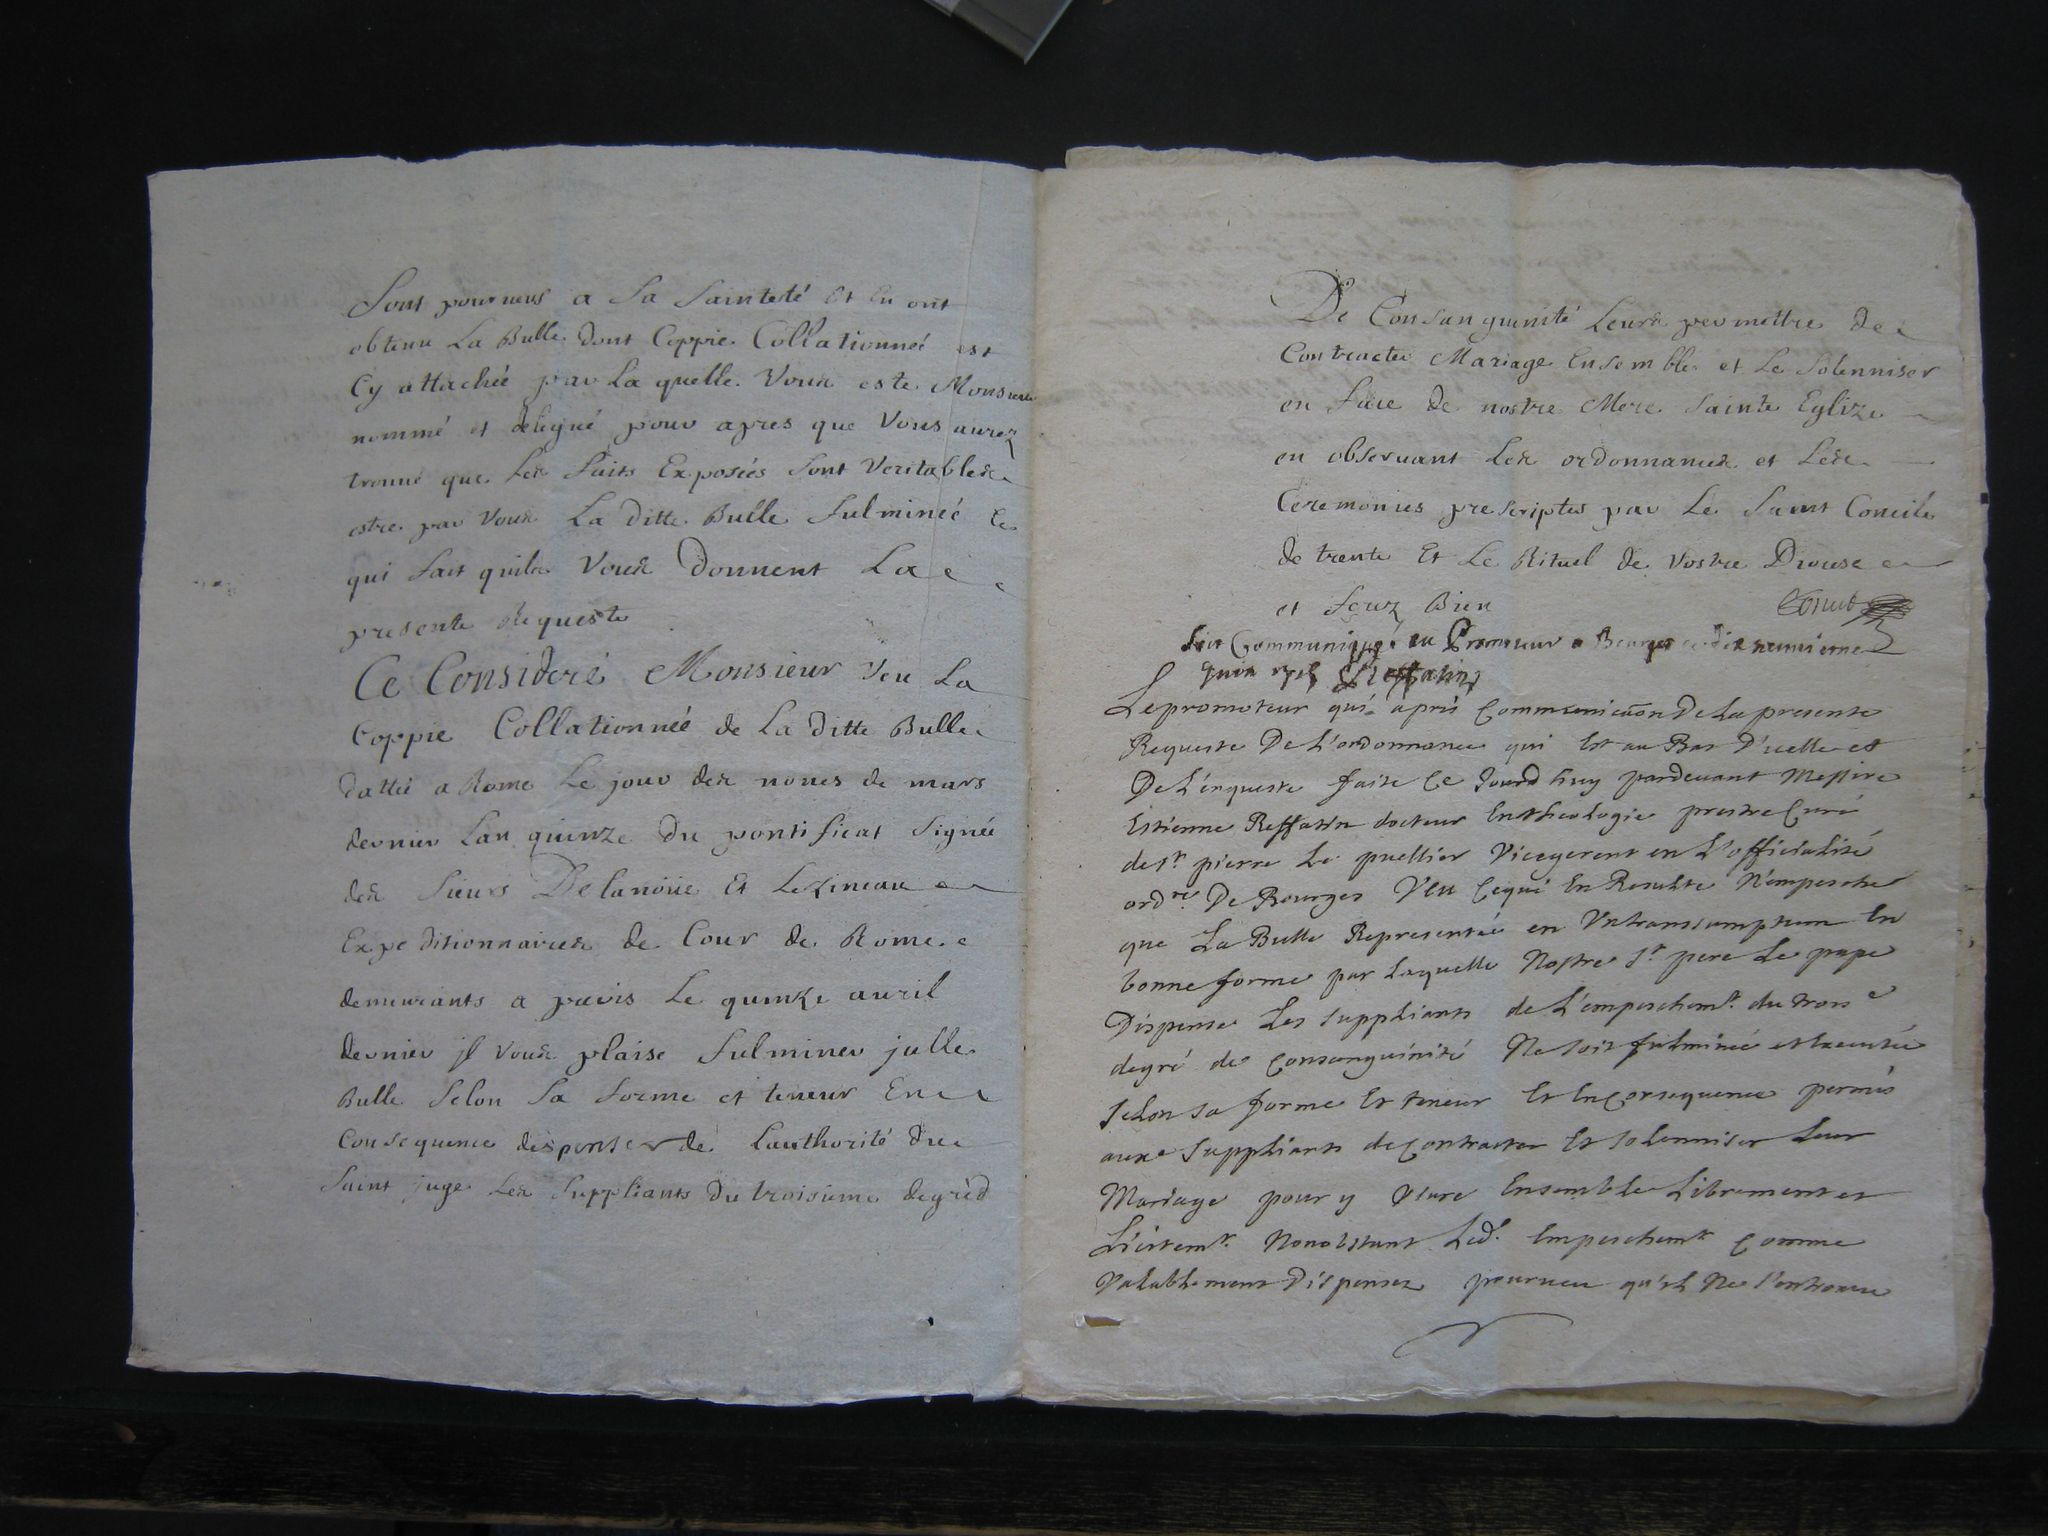 Sont pourveus a Sa Sainteté Et En ont
obtenu La Bulle dont Coppie Collationneé est
Cy attachée par La quelle Vous este Monsieur
nommé et delegué pour apres que Vous aurez
trouué que Les faits Exposés Sont Veritables
estre par Vous La ditte Bulle fulmineé Ce
qui fait quils Vous donnent La
presente Requeste
Ce Consideré Monsieur Veu La
Coppie Collationneé de La ditte Bulle
dattée a Rome Le jour des nones de mars
dernier Lan quinze Du pontificat Signée
des Sieurs Delanoüe Et Lezineau
Expeditionnaires de Cour de Rome
demeurants a paris Le quinze auril
dernier jl Vous plaise fulminer jcelle
Bulle Selon Sa forme et teneur En
Consequence dispenser de Lauthorité du
Saint juge Les Suppliants Du troisieme degréd
De Consanguinité Leurs permettre de
Contracter Mariage Ensemble et Le Solenniser
en face de nostre Mere Sainte Eglize
en obseruant Les ordonnances et Les
Ceremonies prescriptes par Le Saint Concile
de trente Et Le Rituel de Vostre Diocese
et ferez Bien
Soit Communiqué au Promoteur a Bourges ce dix neuuieme
Juin
Le promoteur qui apris Communicaõn De La presente
Requeste De L'ordonnance qui Est au Bas D'icelle et
De L'enqueste faite Ce Jourd huy pardeuant Messire
Estienne Reffatin docteur En theologie prestre Curé
de st pierre Le puellier Vicegerent en L'officialité
ordre De Bourges Veu Ce qui En Resulte N'empesche
que La Bulle Representée en Vn transumptum En
bonne forme par Laquelle Nostre st pere Le pape
Dispense Les suppliants de L'empeschemt du trois e
degré de Consanguinité Ne soit fulminée et Executée
selon sa forme Et teneur Et En Consequence permis
aux suppliants de Contracter Et solenniser Leur
Mariage pour y Viure Ensemble Librement et
Licitemt Nonobstant Led. Empeschemt Comme
Valablement Dispensez pourueu qu'il Ne s'en trouue